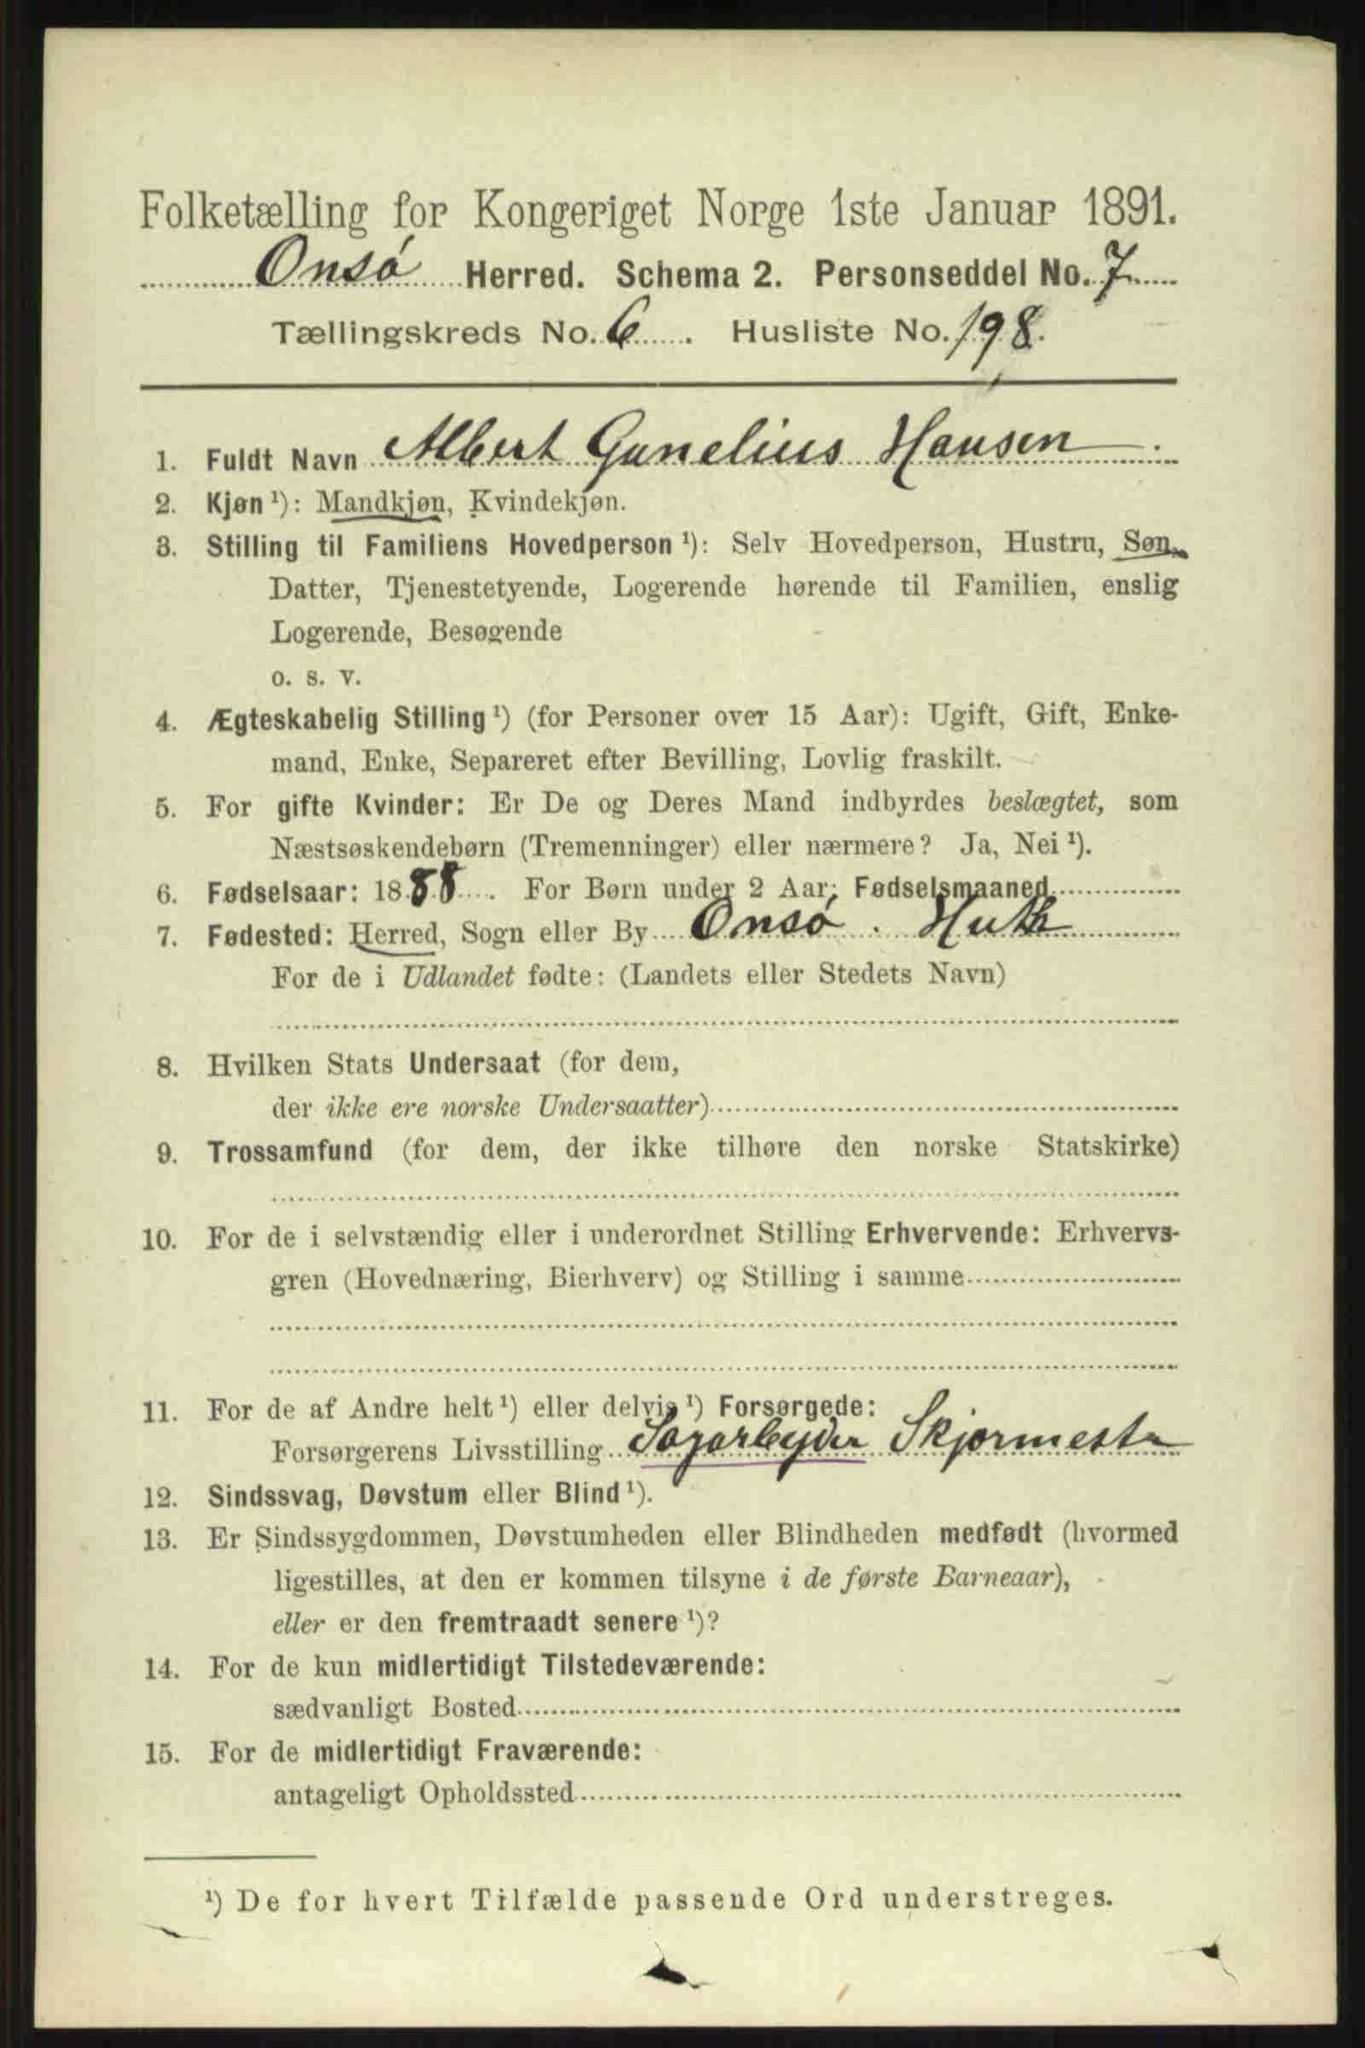 Folketælling for Kongeriget Norge 1ste Januar 1891.
Onsø Herred. Schema 2. Personseddel No. 7
Tællingskreds No. 6. Husliste No. 198.
1. Fuldt Navn Albert Gunelius Hansen.
2. Kjøn ¹): Mandkjøn, Kvindekjøn.
3. Stilling til Familiens Hovedperson ¹): Selv Hovedperson, Hustru, Søn,
Datter, Tjenestetyende, Logerende hørende til Familien, enslig
Logerende, Besøgende
o. s. v.
4. Ægteskabelig Stilling ¹) (for Personer over 15 Aar): Ugift, Gift, Enke-
mand, Enke, Separeret efter Bevilling, Lovlig fraskilt.
5. For gifte Kvinder: Er De og Deres Mand indbyrdes beslægtet, som
Næstsøskendebørn (Tremenninger) eller nærmere? Ja, Nei ¹).
6. Fødselsaar: 1888. For Børn under 2 Aar: Fødselsmaaned
7. Fødested: Herred, Sogn eller By Onsø.
For de i Udlandet fødte: (Landets eller Stedets Navn)
8. Hvilken Stats Undersaat (for dem,
der ikke ere norske Undersaatter)
9. Trossamfund (for dem, der ikke tilhøre den norske Statskirke)
10. For de i selvstændig eller i underordnet Stilling Erhvervende: Erhvervs-
gren (Hovednæring, Bierhverv) og Stilling i samme
11. For de af Andre helt ¹) eller delvis ¹) Forsørgede:
Forsørgerens Livsstilling Sagarbeyder
12. Sindssvag, Døvstum eller Blind ¹).
13. Er Sindssygdommen, Døvstumheden eller Blindheden medfødt (hvormed
ligestilles, at den er kommen tilsyne i de første Barneaar),
eller er den fremtraadt senere ¹)?
14. For de kun midlertidigt Tilstedeværende:
sædvanligt Bosted
15. For de midlertidigt Fraværende:
antageligt Opholdssted
¹) De for hvert Tilfælde passende Ord understreges.